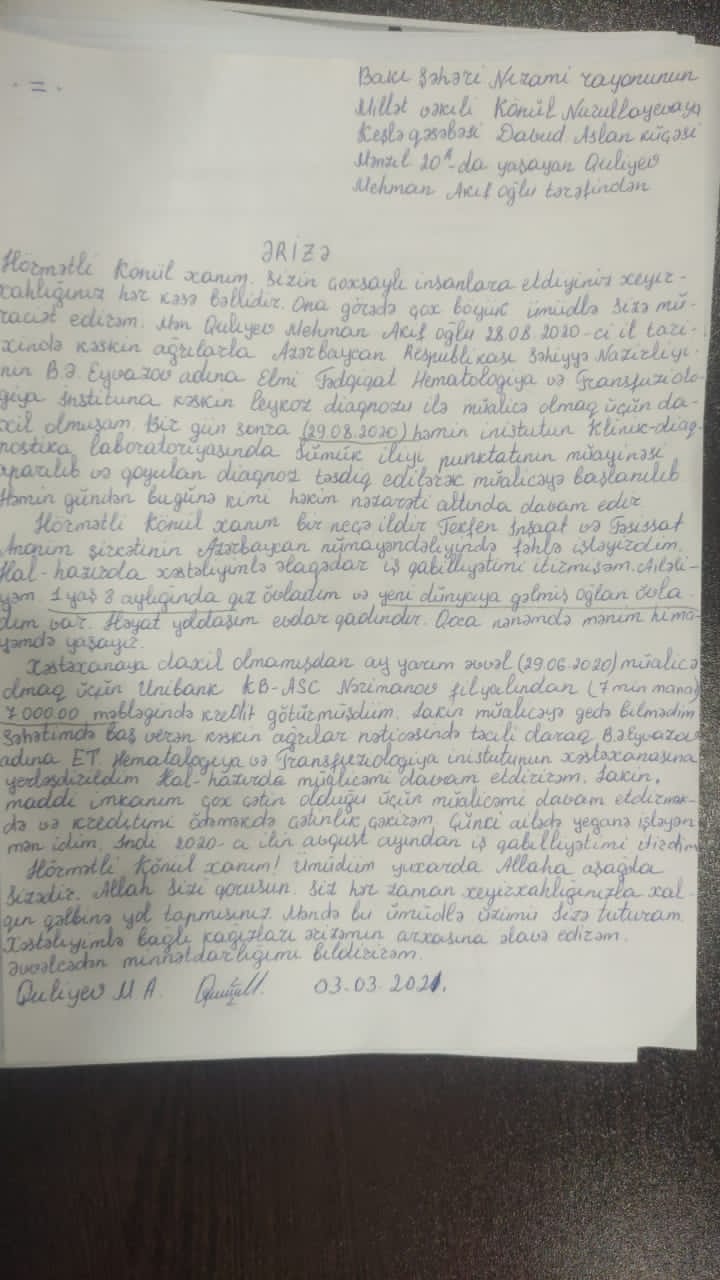 Bakı Şəhəri Nizami rayonunun
Millət vəkili Könül Nurullayevaya
Keşlə qəsəbəsi Davud Aslan küçəsi
Mənzil 20ᴬ-da yaşayan Quliyev
Mehman Akif oğlu tərəfindən
ƏRİZƏ
Hörmətli Könül xanım. Sizin çoxsaylı insanlara etdiyiniz xeyir-
xahlığınız hər kəsə bəllidir. Ona görədə çox böyük ümüdlə Sizə mü-
raciət edirəm. Mən Quliyev Mehman Akif oğlu 28.08.2020-ci il tari-
xində kəskin ağrılarla Azərbaycan Respublikası Səhiyyə Nazirliyi-
nin B.Ə. Eyvazov adına Elmi Tədqiqat Hematologiya və Transfuziolo-
giya İnstituna kəskin leykoz diaqnozu ilə müalicə olmaq üçün da-
xil olmuşam. Bir gün sonra (29.08.2020) həmin inistutun Klinik-diaq-
nostika laboratoriyasında Sümük iliyi punktatının müayinəsi
aparılıb və qoyulan diaqnoz təsdiq edilərək müalicəyə başlanılıb
Həmin gündən bugünə kimi həkim nəzarəti altında davam edir
Hörmətli Könül xanım bir neçə ildir Tekfen İnşaat və Təsissat
Anonim şirkətinin Azərbaycan nümayəndəliyində fəhlə işləyirdim.
Hal-hazırda xəstəliyimlə əlaqədar iş qabilliyətimi itirmişəm. Ailəli-
yəm 1 yaş 8 aylığında qız övladım və yeni dünyaya gəlmiş oğlan övla-
dım var. Həyat yoldaşım evdar qadındır. Qoca nənəmdə mənim hima-
yəmdə yaşayır.
Xəstəxanaya daxil olmamışdan ay yarım əvvəl (29.06.2020) müalicə
olmaq üçün Unibank KB-ASC Nərimanov filyalından (7 min manat)
7000.00 məbləğində kredit götürmüşdüm. Lakin müalicəyə gedə bilmədim
Səhətimdə baş verən kəskin ağrılar nəticəsində təcili olaraq B.Əyvazov
adına ET. Hematalogiya və Transfuziologiya inistutunun xəstəxanasına
yerləşdirildim Hal-hazırda müalicəmi davam etdirirəm. Lakin,
maddi imkanım çox çətin olduğu üçün müalicəmi davam etdirmək-
də və kreditimi ödəməkdə çətinlik çəkirəm. Çünki ailədə yeganə işləyən
mən idim. İndi 2020-ci ilin avqust ayından iş qabilliyətimi itirdim
Hörmətli Könül xanım! Ümüdüm yuxarda Allaha aşağıda
Sizədir. Allah Sizi qorusun. Siz hər zaman xeyirxahlığınızla xal-
qın qəlbinə yol tapmısınız. Məndə bu ümüdlə üzümü Sizə tuturam.
Xəstəliyimlə bağlı kağızları ərizəmin arxasına əlavə edirəm.
Əvvəlcədən minnətdarlığımı bildirirəm.
Quliyev M.A. 03.03.2021.